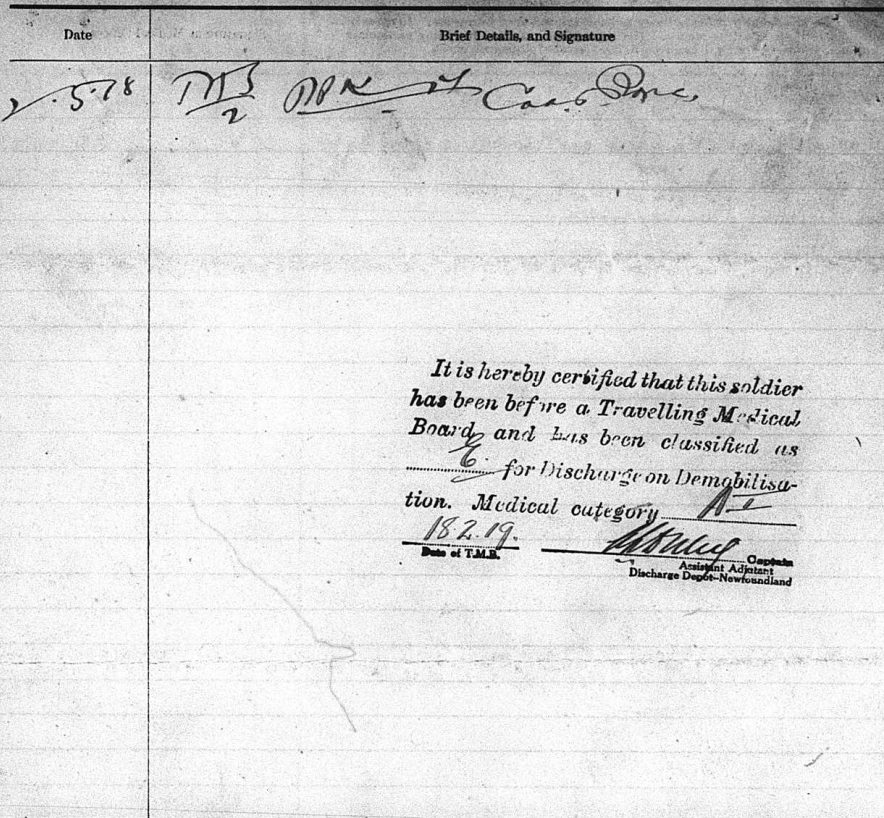 Date Brief Details, and Signature
5.18
2
It is hereby certified that this soldier
has been before a Travelling Medical
Board, and has been classified as
E. for Discharge on Demobilisa-
tion. Medical category A
18.2.19.
Date of T.M.B. Captain
Assistant Adjutant
Discharge Depôt–Newfoundland